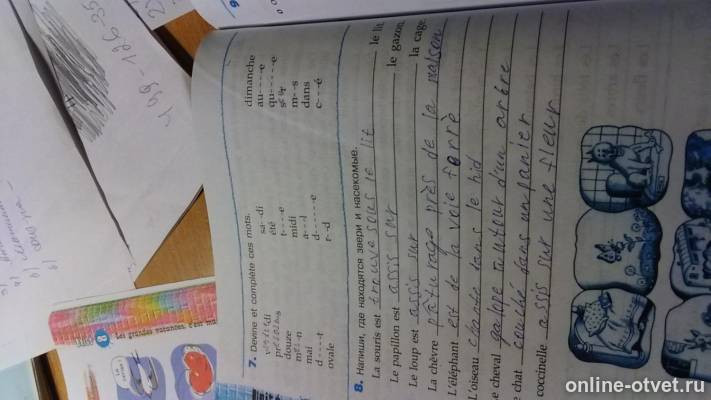 7. Devine et complète ces mots.
vendredi sa--di dimanche
printemps été au----e
douze t----e qu-----e
matin midi s--r
mai a---l m--s
d----t d------e dans
ovale r--d c---é
8. Напиши, где находятся звери и насекомые.
La souris est trouve sous le lit le lit
Le papillon est assis sur le gazon
Le loup est assis sur la cage
La chèvre pâturage près de la maison
L'éléphant est de la voie ferrè
L'oiseau chante dans le nid
Le cheval galope autour d'un arbre
Le chat couché dans un panier
coccinelle assis sur une fleur
8 Les grandes vacances, c'est
499-126-35
online-otvet.ru